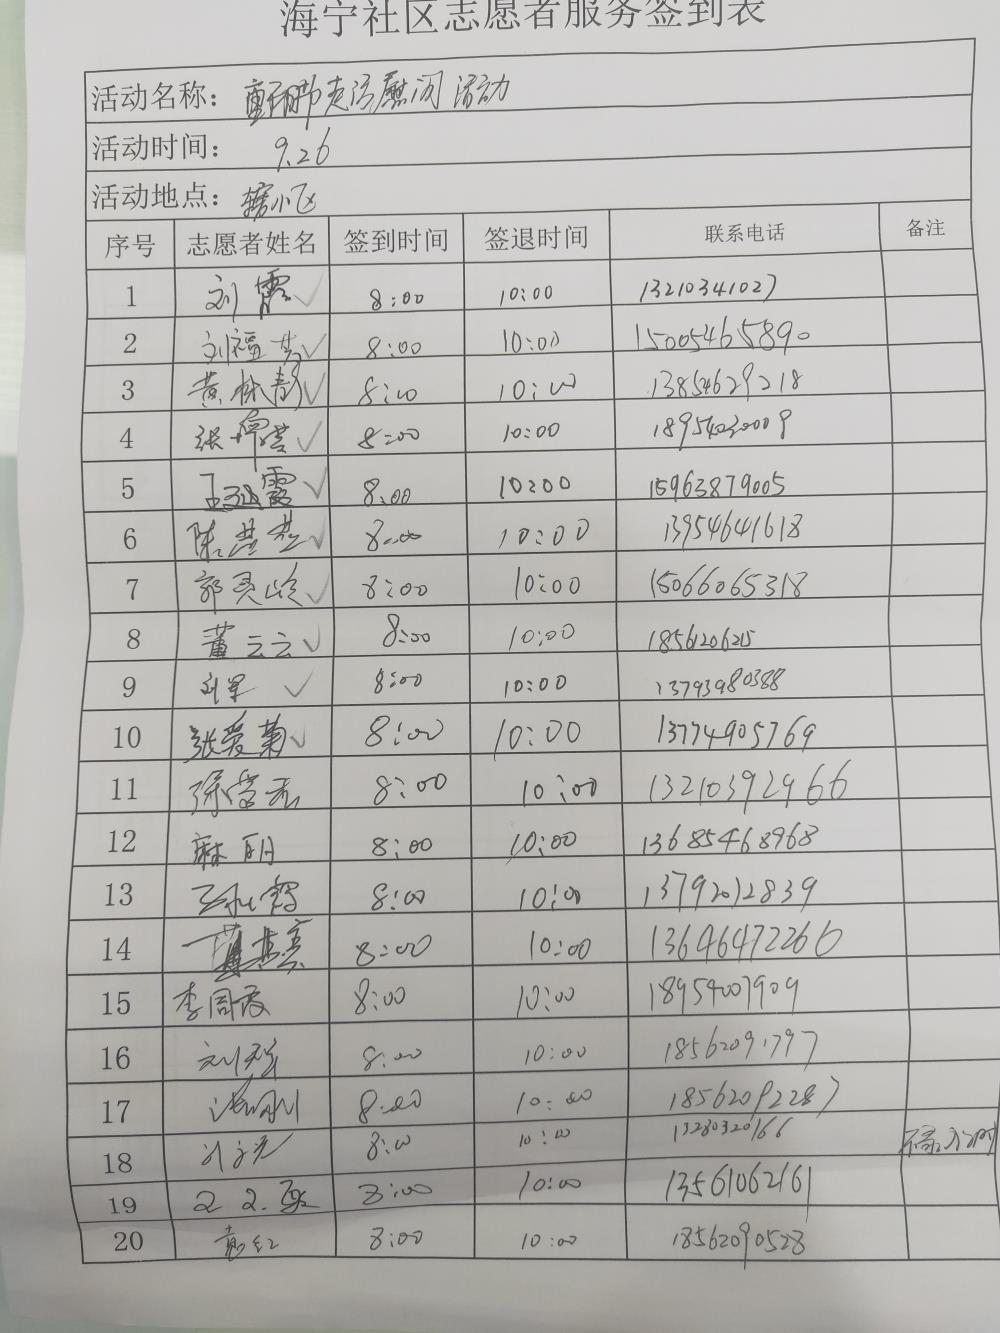 海宁社区志愿者服务签到表
活动名称： 走访慰问活动
活动时间： 9.26
活动地点： 辖小区
序号 志愿者姓名 签到时间 签退时间 联系电话 备注
1 刘霞 8:00 10:00 13210341027
2 刘福芳 8:00 10:00 15005465890
3 黄林静 8:00 10:00 13854629218
4 张 8:00 10:00 18954030009
5 王 霞 8:00 10:00 15963879005
6 陈 8:00 10:00 13954641618
7 郭灵岭 8:00 10:00 15066065318
8 董云云 8:00 10:00
9 刘军 8:00 10:00 13793980388
10 张爱菊 8:00 10:00 13774905769
11 8:00 10:00 13210392966
12 麻 8:00 10:00 13685468968
13 8:00 10:00 13792012839
14 8:00 10:00 13646472266
15 李同霞 8:00 10:00 18954007909
16 刘 8:00 10:00 18562091797
17 8:00 10:00 18562092287
18 8:00 10:00 13280320166
19 8:00 10:00 13561062161
20 袁红 8:00 10:00 18562090528